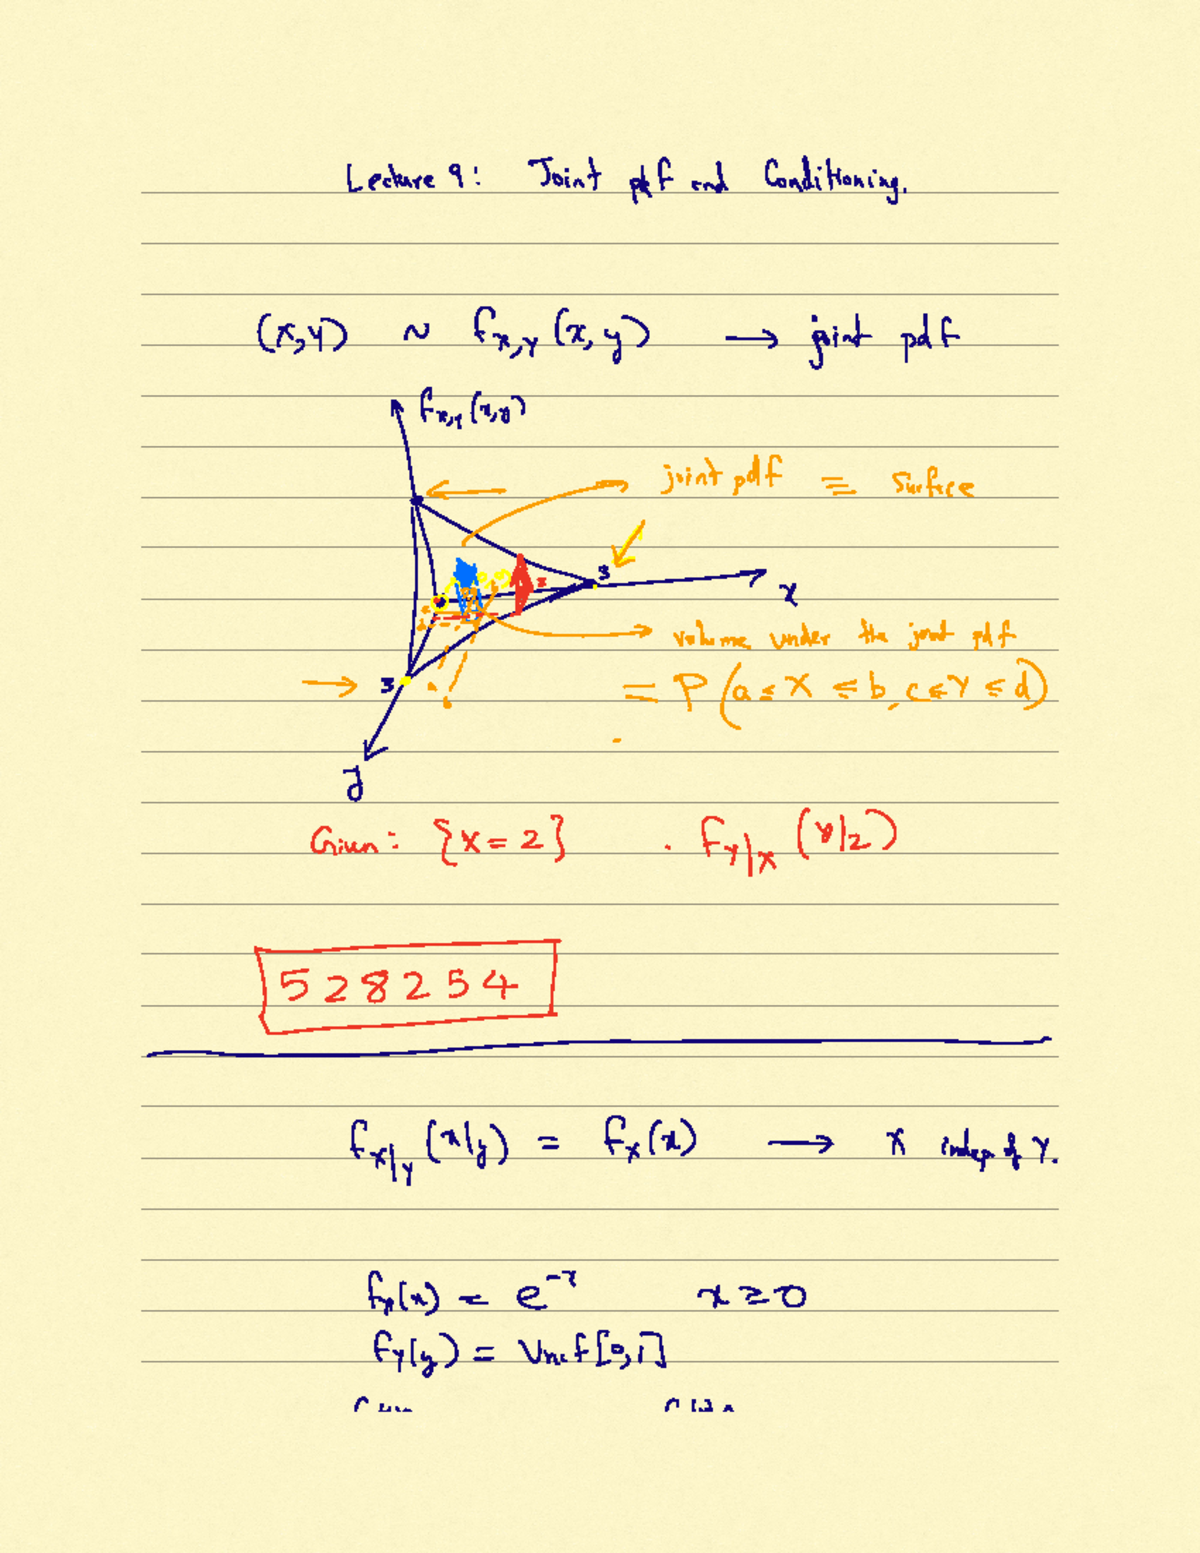 Lecture 9: Joint pdf and Conditioning.
(X,Y) ~ f_{X,Y}(x,y) → joint pdf
f_{X,Y}(x,y)
joint pdf ≡ Surface
3
2
x
volume under the joint pdf
3
= P(a≤X≤b, c≤Y≤d)
y
Given: {X=2} . f_{Y|X}(y|2)
528254
f_{X|Y}(x|y) = f_X(x) → X indep. of Y.
f_X(x) = e^{-x} x≥0
f_Y(y) = Unif[0,1]